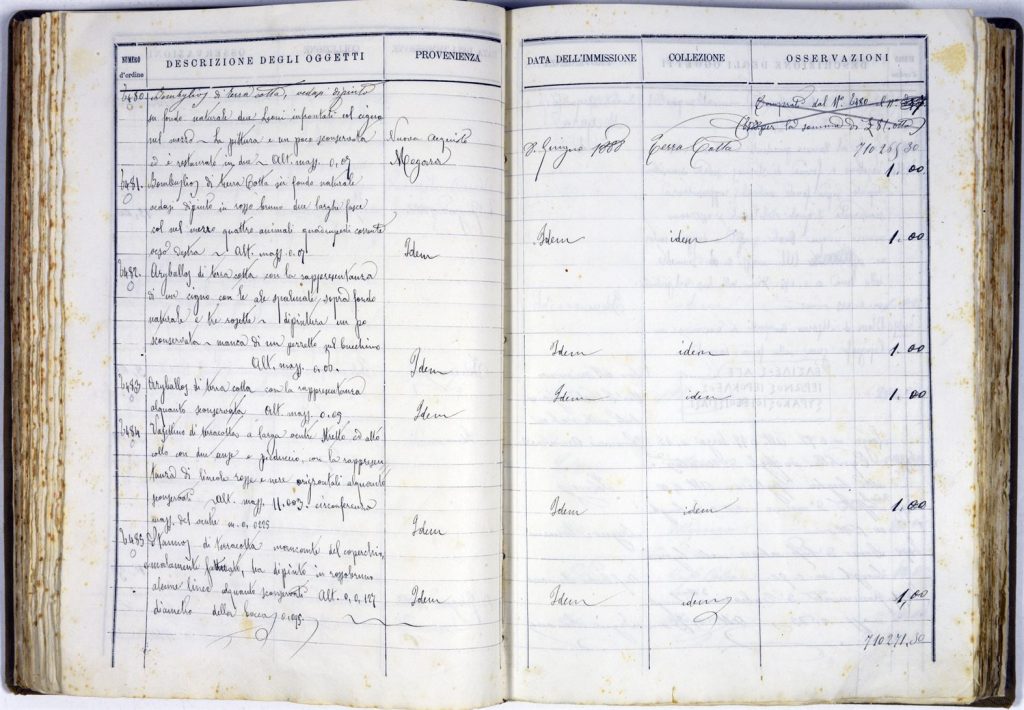 NUMERO d'ordine
DESCRIZIONE DEGLI OGGETTI
PROVENIENZA
DATA DELL'IMMISSIONE
COLLEZIONE
OSSERVAZIONI
6480. Bombylios di terra cotta, vedasi dipinto
su fondo naturale due Leoni infrontati col cigno
nel mezzo ~ la pittura e un poco sconservata
ed e restaurato in due ~ Alt. mass. 0,09
Nuovo acquisto
Megara
8. Giugno 1888
Terra Cotta
Comprato dal N. 6480 al N.
per la somma di £ 81.
710265 30
1.00
6481. Bombylios di terra Cotta su fondo naturale
vedasi dipinto in rosso bruno due larghe fasce
col nel mezzo quattro animali quadrupedi corrente
verso destra ~ Alt. mass. 0.0
Idem
Idem
idem
1.00
6482. Aryballos di terra cotta con la rappresentanza
di un cigno con le ale spalancate, sopra fondo
naturale e tre rosette ~ dipintura un po
sconservata ~ manca di un pezzetto sul bucchino
Alt. mass. 0.06.
Idem
Idem
idem
1.00
6483. Aryballos di terra cotta con la rappresentanza
alquanto sconservata Alt. mass. 0.09
Idem
Idem
idem
1.00
6484. Vasettino di terracotta a larga ventre stretto ed alto
collo con due anze e peduccio, con la rappresen
tanza di lineole rosse e nere orizzontali alquanto
sconservate ~ Alt. mass. circonferenza
mass. del ventre m. 0, 0225
Idem
Idem
idem
1.00
6485. Stamnos di terracotta mancante del coperchio,
rozzamente fatto, ha dipinto in rossobruno
alcune linee alquanto sconservate Alt. 0,0,127
diametro della bocca 0.095.
Idem
Idem
idem
1,00
710271.30